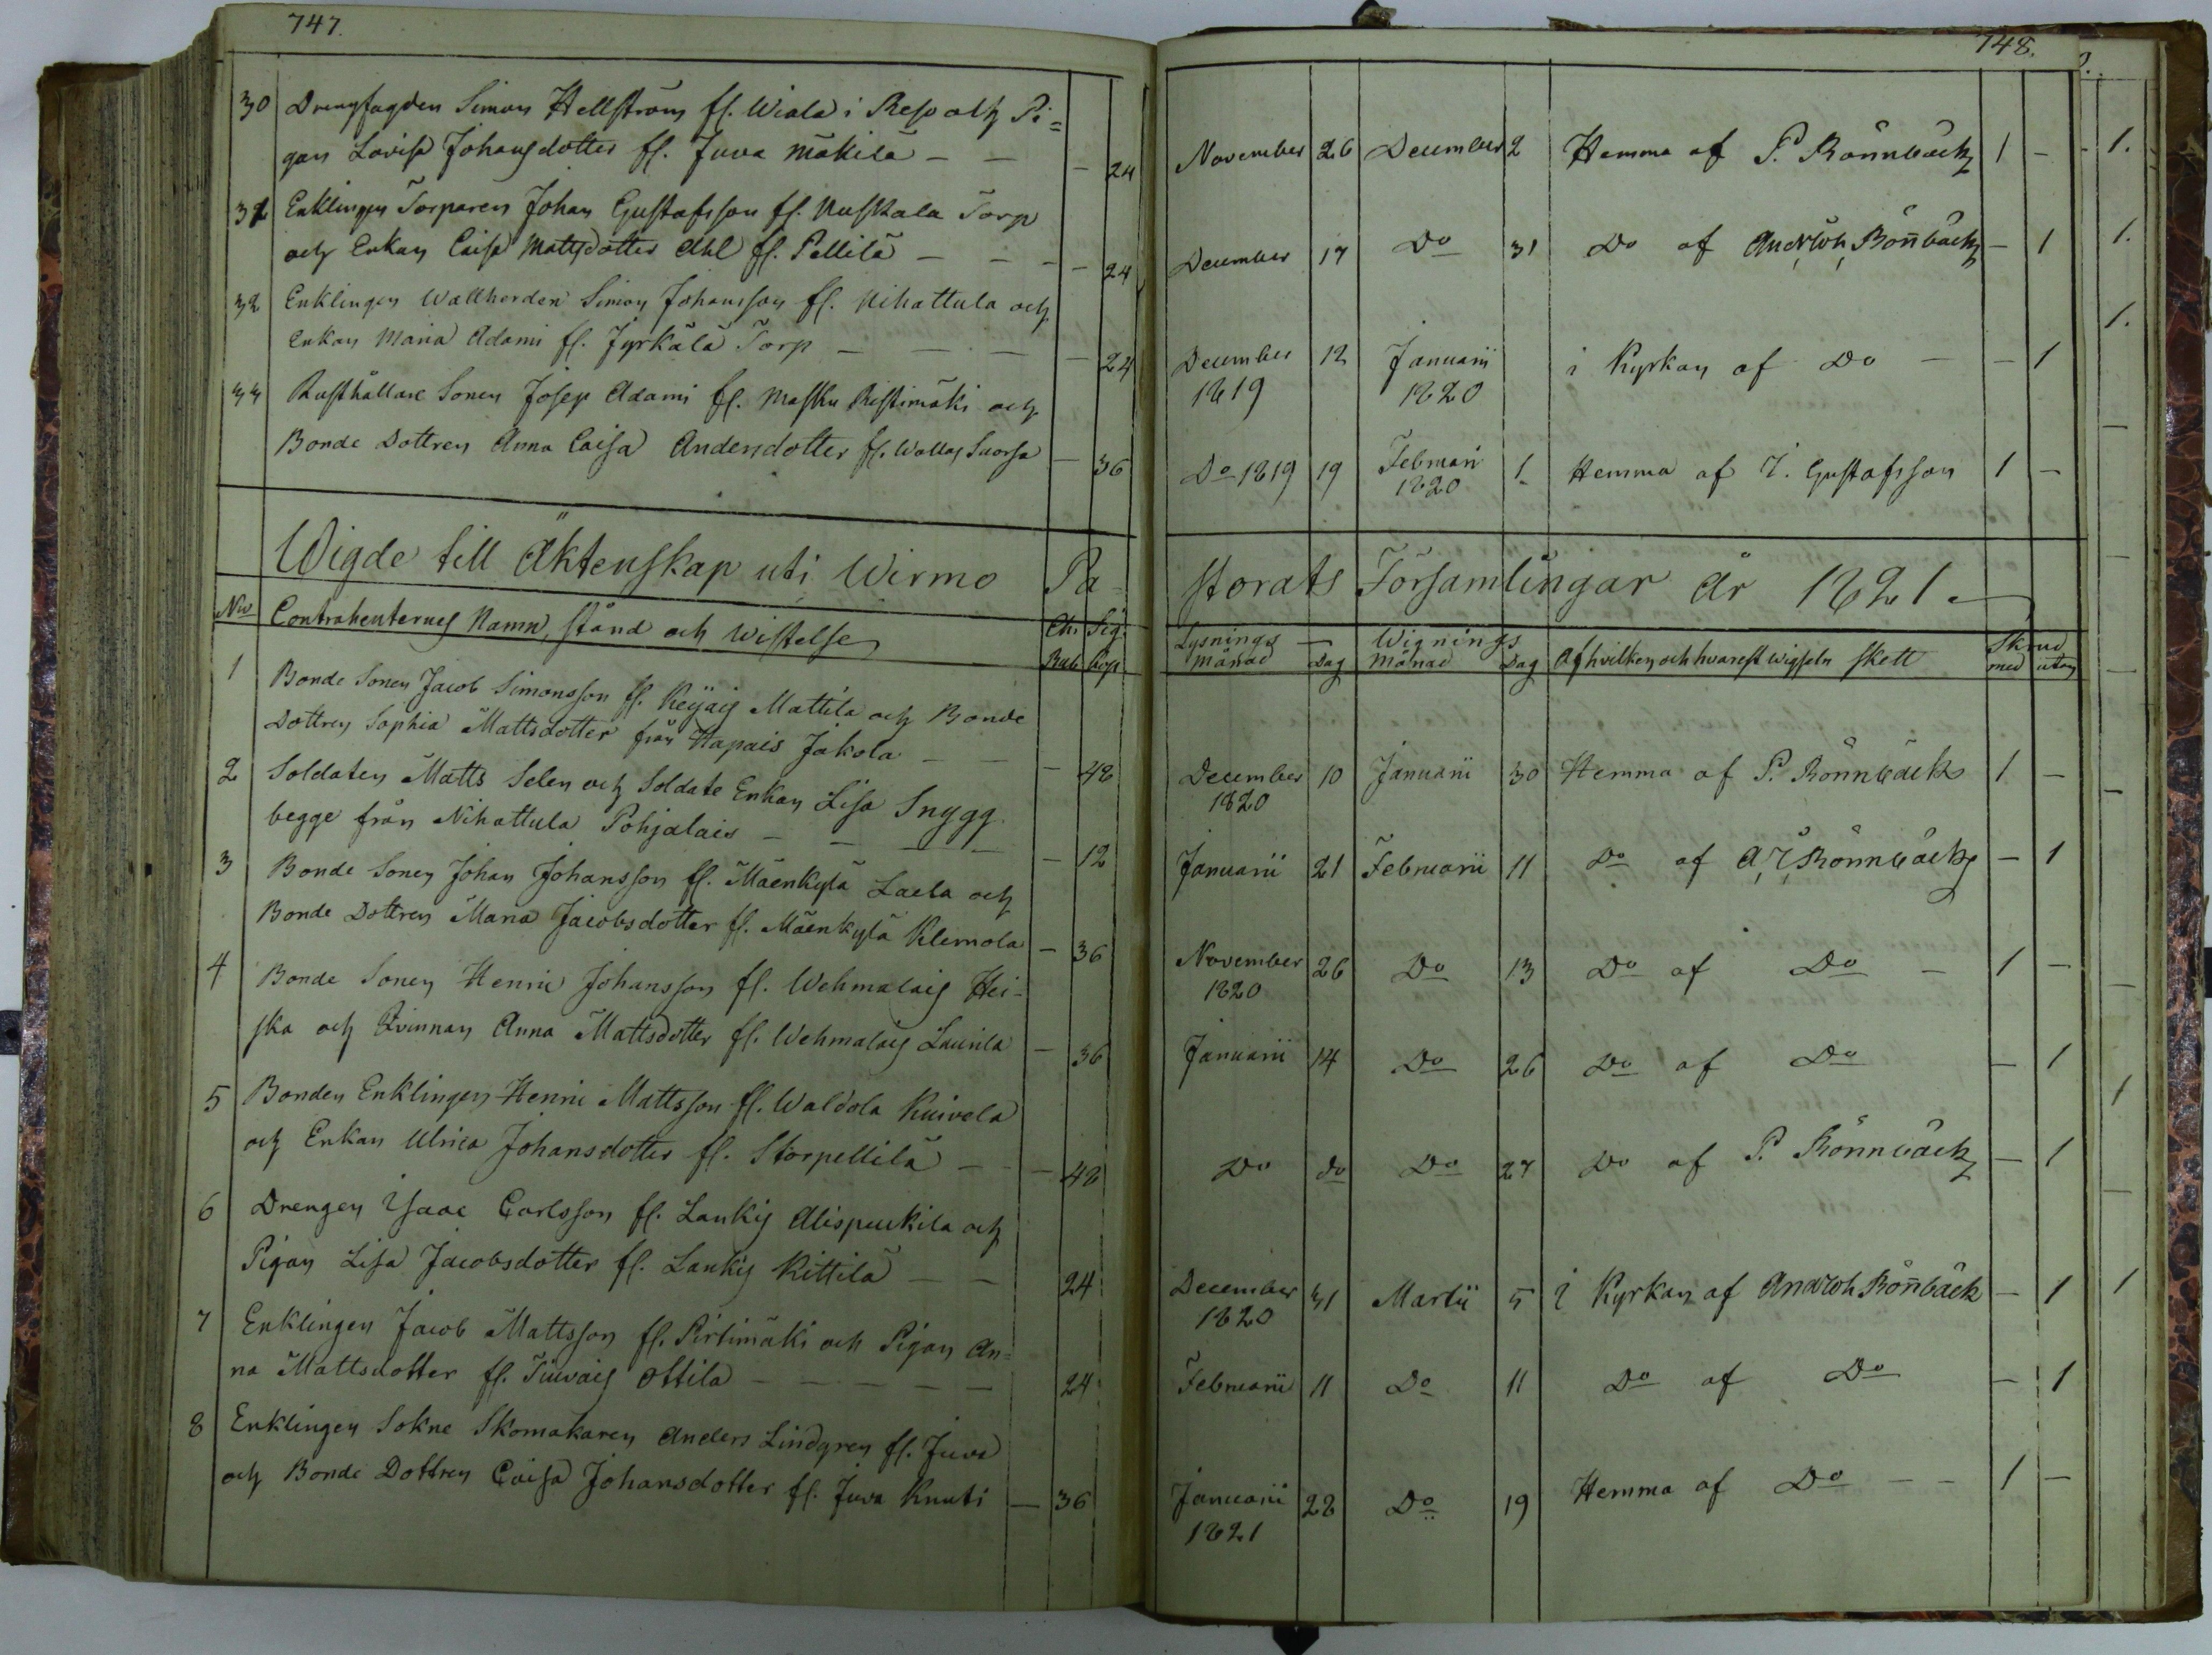 747.
30 Drengfogden Simon Hellström fl. Wiala i Reso och Pi=
gan Lovisa Johansdotter fl. Juva Mäkilä — — — 24
31 Enklingen Torparen Johan Gustafsson fl. Nuskala Torp
och Enkan Caisa Mattsdotter Ahl fl. Pellilä — — — 24
32 Enklingen Wallherden Simon Johansson fl. Nihattula och
Enkan Maria Adami fl. Jyrkälä Torp — — — 24
33 Rusthållare Sonen Josep Adami fl. Masku Ristimäki och
Bonde Dottren Anna Caisa Andersdotter fl. Wallas Suorsa — 36
Wigde till Äktenskap uti Wirmo Pa-
Nro Contrahenternes Namn, stånd och Wistelse Rub. Cop.
1 Bonde Sonen Jacob Simonsson fl. Keijais Mattila och Bonde
Dottren Sophia Mattsdotter från Hapais Jakola — — — 48
2 Soldaten Matts Selen och Soldate Enkan Lisa Snygg
begge från Nihattula Pohjalais — — — — 12
3 Bonde Sonen Johan Johansson fl. Mäenkylä Laela och
Bonde Dottren Maria Jacobsdotter fl. Mäenkylä Klemola — 36
4 Bonde Sonen Henric Johansson fl. Wehmalais Hei-
ska och Qvinnan Anna Mattsdotter fl. Wehmalais Launila — 36
5 Bonden Enklingen Henric Mattsson fl. Waldola Kuivela
och Enkan Ulrica Johansdotter fl. Storpellilä — — 48
6 Drengen Isaac Carlsson fl. Laukis Alispuukila och
Pigan Lisa Jacobsdotter fl. Laukis Kittilä — — 24
7 Enklingen Jacob Mattsson fl. Pirtimäki och Pigan An=
na Mattsdotter fl. Tiuvais Ottila — — — — — 24
8 Enklingen Sokne Skomakaren Anders Lindgren fl. Juva
och Bonde Dottren Caisa Johansdotter fl. Juva Knuti — 36
748.
November 26 December 2 Hemma af P. Rönnbäck 1 —
December 17 Do 31 Do af Rönbäck — 1
December 12 Januarii i Kyrkan af Do — — 1
1819 1820
Do 1819 19 Februari 1. Hemma af I. Gustafsson 1 —
1820
storats Församlingar År 1821.
Lysnings — Wignings Skrud
Månad Dag Månad Dag Af hvilken och hvarest Wigseln skett med utan
December 10 Januarii 30 Hemma af P. Rönnbäck 1 —
1820
Januarii 21 Februarii 11 Do af Rönnbäck — 1
November 26 Do 13 Do af Do — 1 —
1820
Januarii 14 Do 26 Do af Do — 1
Do do Do 27 Do af P. Rönnbäck — 1
December 31 Martii 5 i Kyrkan af Rönbäck — 1
1820
Februarii 11 Do 11 Do af Do — 1
Januarii 28 Do 19 Hemma af Do — — 1 —
1821